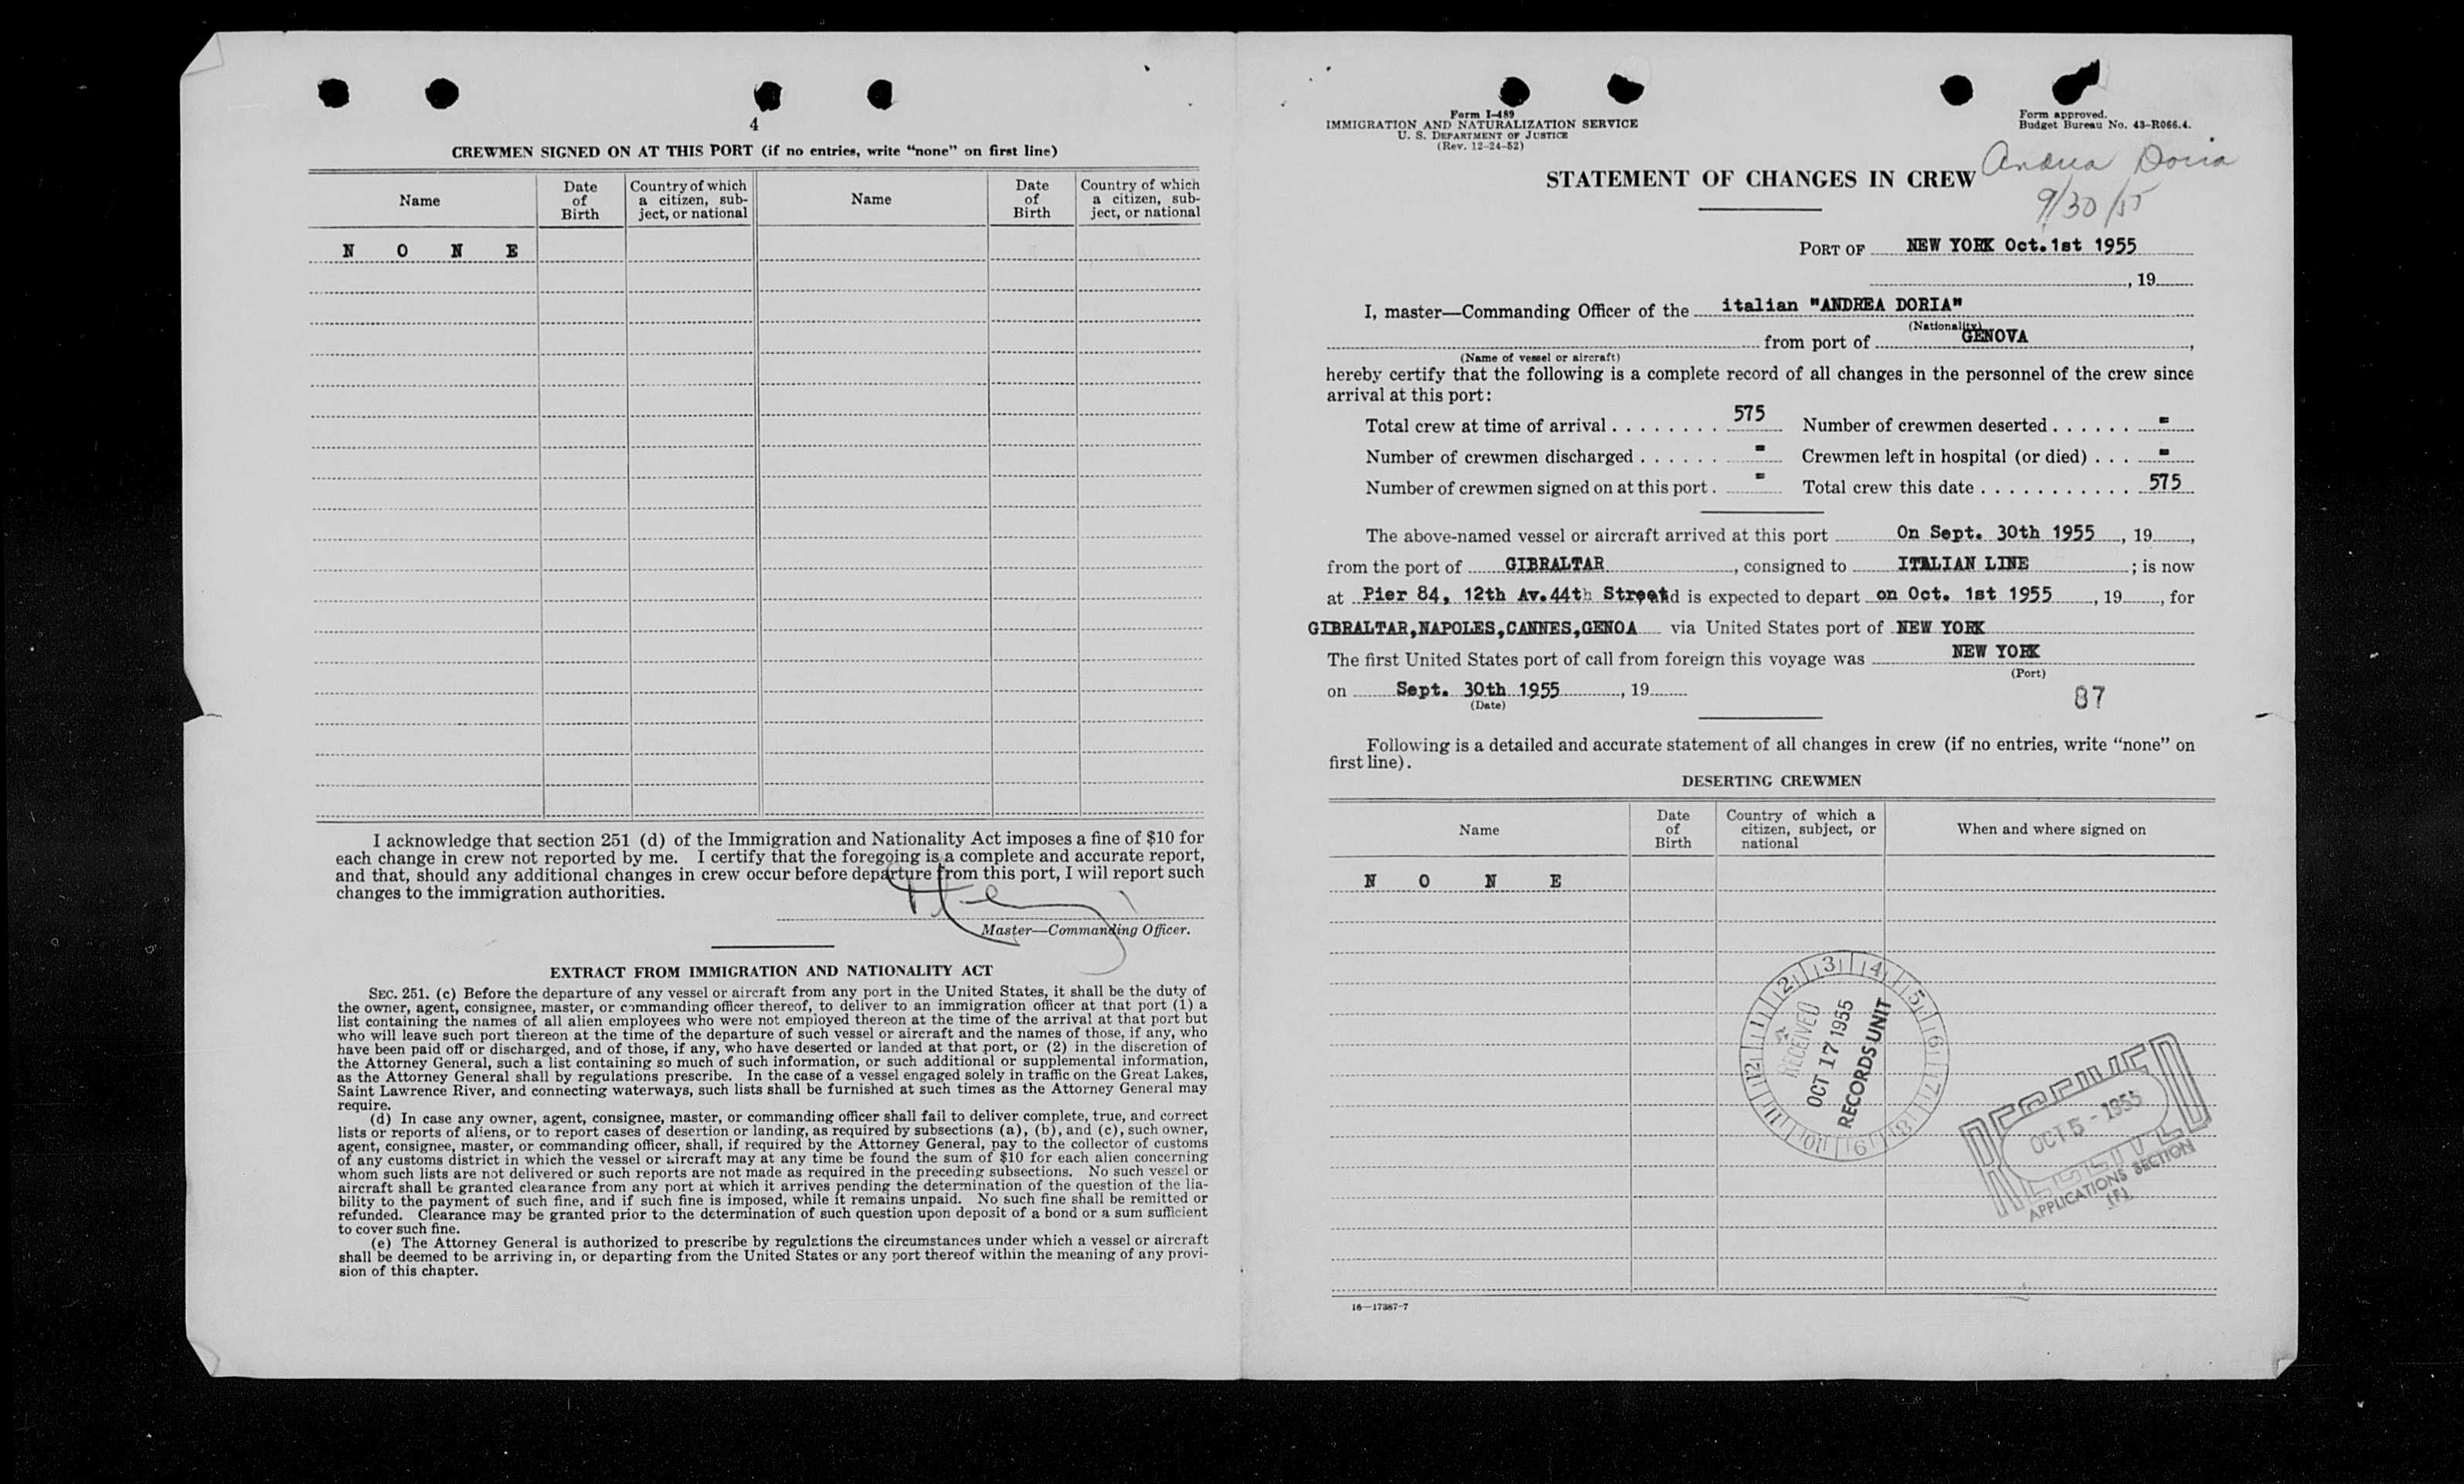 4
CREWMEN SIGNED ON AT THIS PORT (if no entries, write “none” on first line)
Name
Date of Birth
Country of which a citizen, sub-ject, or national
Name
Date of Birth
Country of which a citizen, sub-ject, or national
N O N E
I acknowledge that section 251 (d) of the Immigration and Nationality Act imposes a fine of $10 for
each change in crew not reported by me. I certify that the foregoing is a complete and accurate report,
and that, should any additional changes in crew occur before departure from this port, I will report such
changes to the immigration authorities.
Master—Commanding Officer.
EXTRACT FROM IMMIGRATION AND NATIONALITY ACT
SEC. 251. (c) Before the departure of any vessel or aircraft from any port in the United States, it shall be the duty of
the owner, agent, consignee, master, or commanding officer thereof, to deliver to an immigration officer at that port (1) a
list containing the names of all alien employees who were not employed thereon at the time of the arrival at that port but
who will leave such port thereon at the time of the departure of such vessel or aircraft and the names of those, if any, who
have been paid off or discharged, and of those, if any, who have deserted or landed at that port, or (2) in the discretion of
the Attorney General, such a list containing so much of such information, or such additional or supplemental information,
as the Attorney General shall by regulations prescribe. In the case of a vessel engaged solely in traffic on the Great Lakes,
Saint Lawrence River, and connecting waterways, such lists shall be furnished at such times as the Attorney General may
require.
(d) In case any owner, agent, consignee, master, or commanding officer shall fail to deliver complete, true, and correct
lists or reports of aliens, or to report cases of desertion or landing, as required by subsections (a), (b), and (c), such owner,
agent, consignee, master, or commanding officer, shall, if required by the Attorney General, pay to the collector of customs
of any customs district in which the vessel or aircraft may at any time be found the sum of $10 for each alien concerning
whom such lists are not delivered or such reports are not made as required in the preceding subsections. No such vessel or
aircraft shall be granted clearance from any port at which it arrives pending the determination of the question of the lia-
bility to the payment of such fine, and if such fine is imposed, while it remains unpaid. No such fine shall be remitted or
refunded. Clearance may be granted prior to the determination of such question upon deposit of a bond or a sum sufficient
to cover such fine.
(e) The Attorney General is authorized to prescribe by regulations the circumstances under which a vessel or aircraft
shall be deemed to be arriving in, or departing from the United States or any port thereof within the meaning of any provi-
sion of this chapter.
Form I-489
IMMIGRATION AND NATURALIZATION SERVICE
U. S. DEPARTMENT OF JUSTICE
(Rev. 12-24-52)
Form approved.
Budget Bureau No. 43-R066.4.
Andrea Doria
9/30/55
STATEMENT OF CHANGES IN CREW
PORT OF NEW YORK Oct.1st 1955
, 19
I, master—Commanding Officer of the italian "ANDREA DORIA"
(Nationality)
from port of GENOVA,
(Name of vessel or aircraft)
hereby certify that the following is a complete record of all changes in the personnel of the crew since
arrival at this port:
Total crew at time of arrival . . . . . . . . 575 Number of crewmen deserted . . . . . . -
Number of crewmen discharged . . . . . . - Crewmen left in hospital (or died) . . . -
Number of crewmen signed on at this port . - Total crew this date . . . . . . . . . . . 575
The above-named vessel or aircraft arrived at this port On Sept. 30th 1955, 19,
from the port of GIBRALTAR, consigned to ITALIAN LINE; is now
at Pier 84, 12th Av.44th Street, and is expected to depart on Oct. 1st 1955, 19, for
GIBRALTAR,NAPOLES,CANNES,GENOA via United States port of NEW YORK
The first United States port of call from foreign this voyage was NEW YORK
(Port)
on Sept. 30th 1955, 19
(Date)
87
Following is a detailed and accurate statement of all changes in crew (if no entries, write “none” on
first line).
DESERTING CREWMEN
Name
Date of Birth
Country of which a citizen, subject, or national
When and where signed on
N O N E
12 1 2 3 4 5 6 7 8 9 10 11
RECEIVED
OCT 17 1955
RECORDS UNIT
RECEIVED
OCT 5 - 1955
APPLICATIONS SECTION
16—17387-7